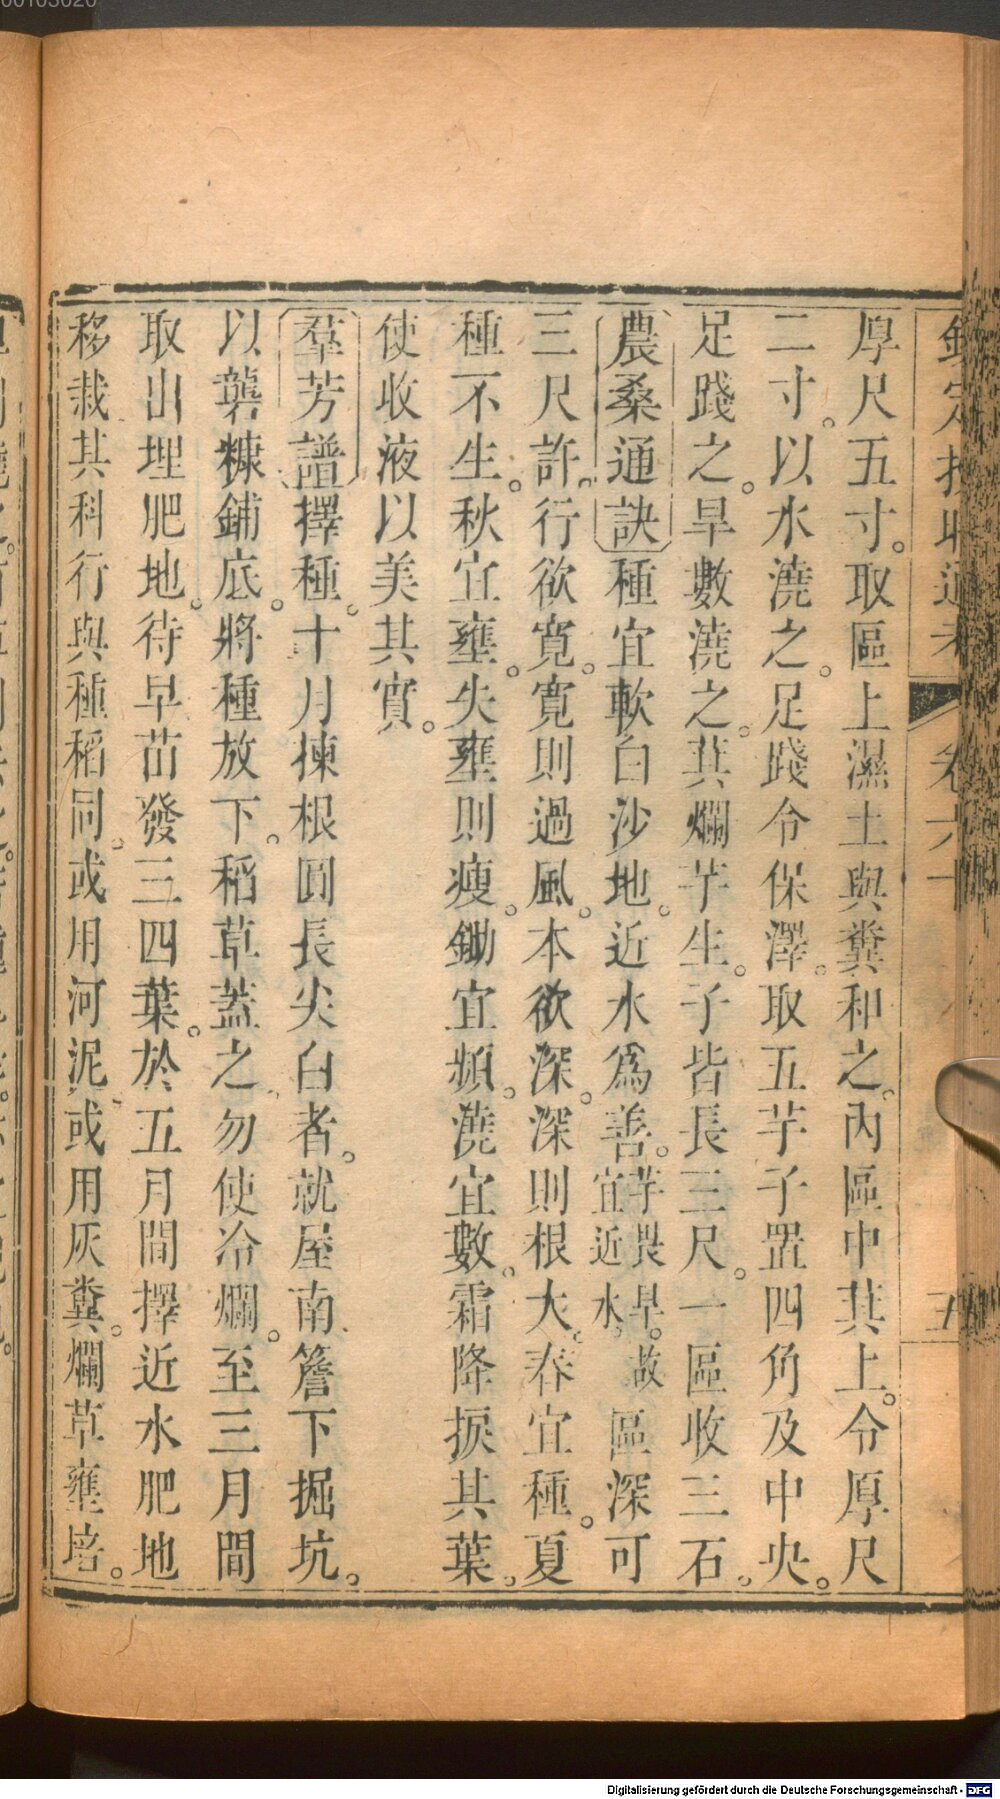 厚尺五寸。取區上濕土與糞和之。內區中萁上。令厚尺
二寸。以水澆之。足踐令保澤。取五芋子置四角及中央。
足踐之。旱數澆之。萁爛芋生。子皆長三尺。一區收三石。
農桑通訣種宜軟白沙地。近水為善。芋畏旱。故宜近水。區深可
三尺許。行欲寬。寬則過風。本欲深。深則根大。春宜種。夏
種不生。秋宜壅。失壅則瘦。鋤宜頻。澆宜數。霜降捩其葉。
使收液以美其實。
羣芳譜擇種。十月揀根圓長尖白者。就屋南簷下掘坑。
以礱糠鋪底。將種放下。稻草蓋之。勿使冷爛。至三月間
取出埋肥地。待早苗發三四葉。於五月間擇近水肥地
移栽。其科行與種稻同。或用河泥。或用灰糞。爛草壅培。
卷六十
五
Digitalisierung gefördert durch die Deutsche Forschungsgemeinschaft - DFG